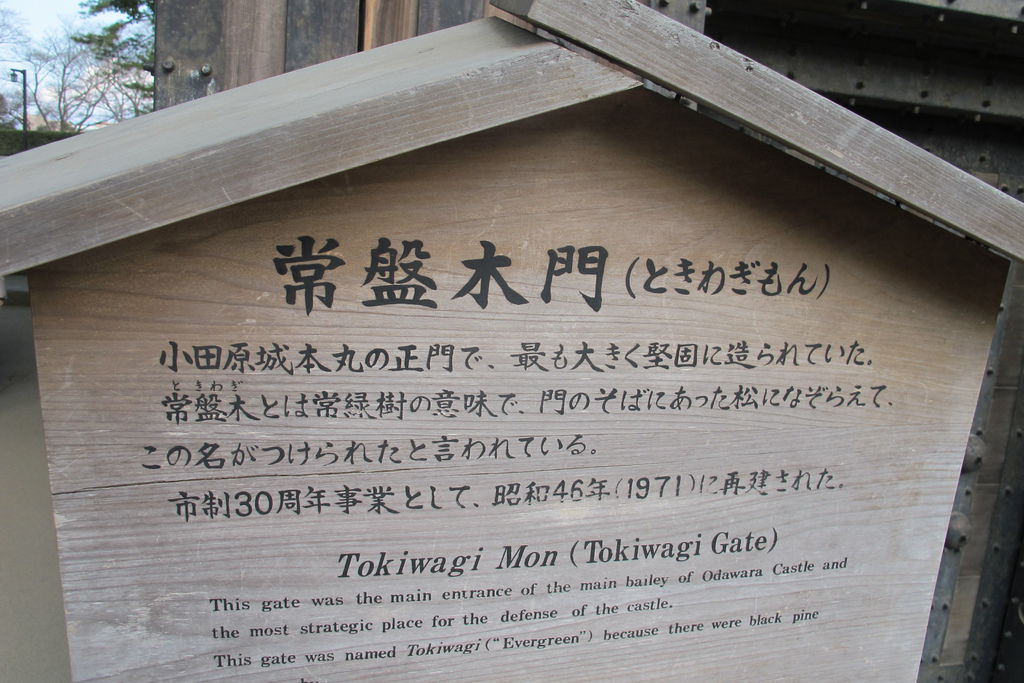 常盤木門(ときわぎもん)
小田原城本丸の正門で、最も大きく堅固に造られていた。
ときわぎ
常盤木とは常緑樹の意味で、門のそばにあった松になぞらえて、
この名がつけられたと言われている。
市制30周年事業として、昭和46年(1971)に再建された。
Tokiwagi Mon (Tokiwagi Gate)
This gate was the main entrance of the main bailey of Odawara Castle and
the most strategic place for the defense of the castle.
This gate was named Tokiwagi ("Evergreen") because there were black pine